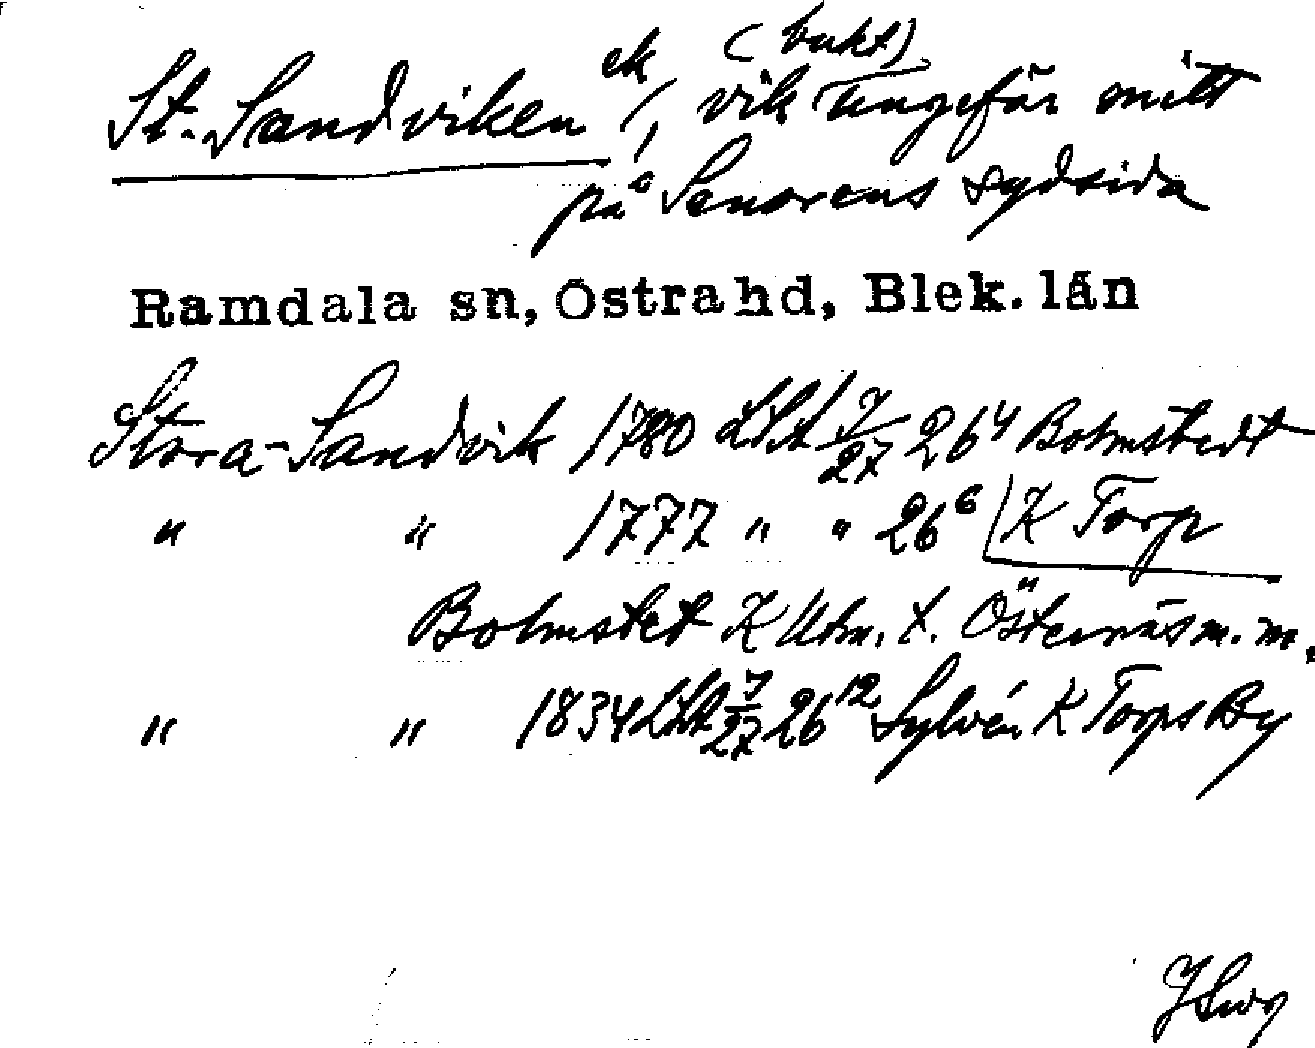 St. Sandviken ek, (bukt) vik ungefär mitt
på Senorens sydsida
Ramdala sn, Östra hd, Blek. län
Stora-Sandvik 1780 LSA 7/27 26⁴ Bohmstedt
" " 1777 " " 26⁶ K Torp
Bohmstet K Utm. t. Östernäs m. m.
" " 1834 LSA 7/27 26¹² Sylvén K Torps By